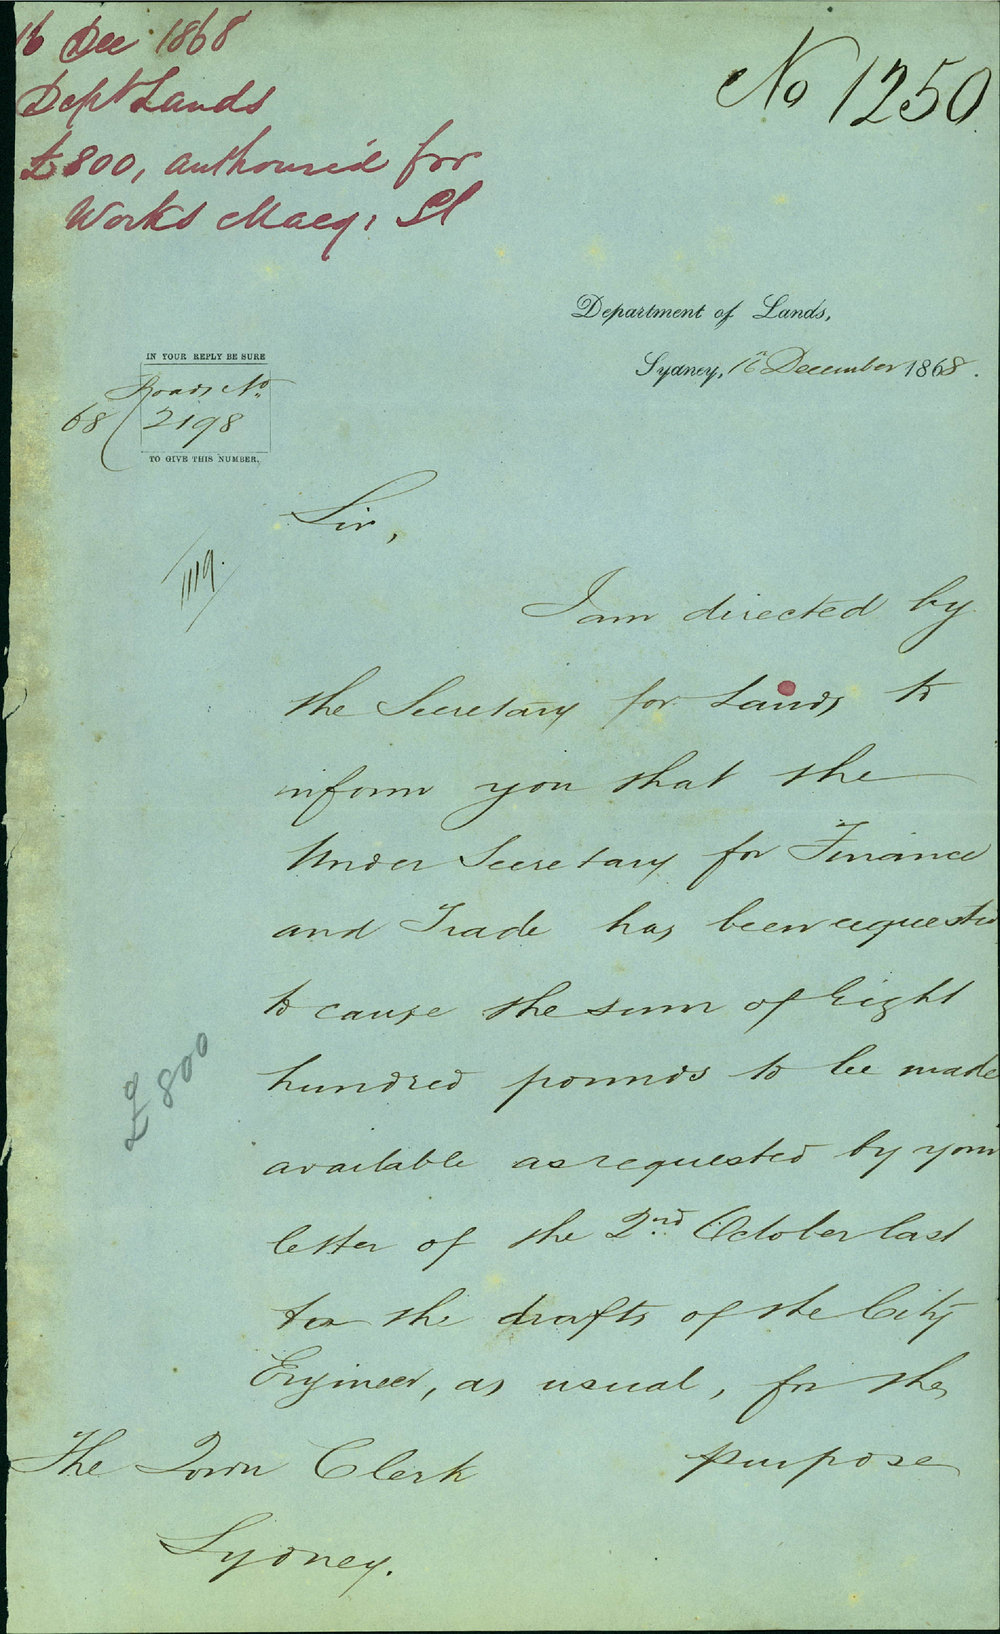 16 Dec 1868
Dept Lands
£800, authourised for
Works Macq; St
No 1250
Department of Lands,
Sydney, 16 December 1868.
IN YOUR REPLY BE SURE
Roads No.
68/2198
TO GIVE THIS NUMBER.
Sir,
1119.
I am directed by
the Secretary for Lands to
inform you that the
Under Secretary for Finance
and Trade has been requested
to cause the sum of Eight
hundred pounds to be made
£800
available as requested by your
letter of the 2nd October last
to the drafts of the City
Engineer, as usual, for the
purpose
The Town Clerk
Sydney.